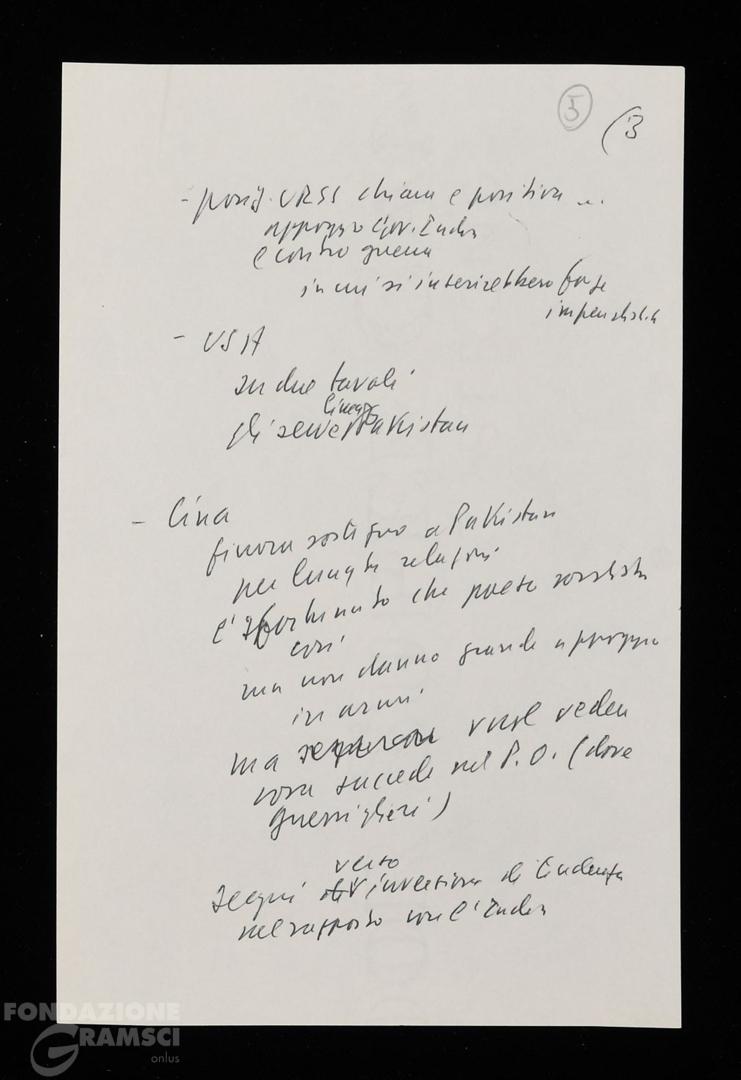 5
(3
- posiz. URSS chiara e positiva ...
appoggio Gov. India
e contro guerra
in cui si inserirebbero forze
imperialiste
- USA
su due tavoli
lunga
gli serve Pakistan
- Cina
finora sostegno a Pakistan
per lunghe relazioni
è che paese socialista
così
ma non danno grande appoggio
in armi
ma vuol vedere
cosa succede nel P.O. (dove
guerriglieri)
verso
segni inversione di tendenza
nel rapporto con l'India
FONDAZIONE
GRAMSCI
onlus